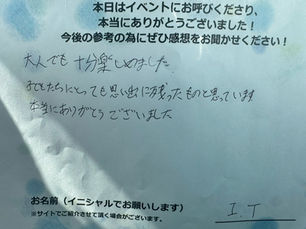 本日はイベントにお呼びくださり、
本当にありがとうございました！
今後の参考の為にぜひ感想をお聞かせください！
大人でも十分楽しめました
子どもたちにとっても思い出に残ったものと思っています
本当にありがとうございました
お名前（イニシャルでお願いします）
※サイトでご紹介させて頂く場合がございます。
I.T